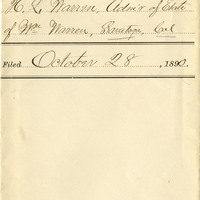 H. L. Warren, Adm'r of Estate
of Wm Warren, Saratoga, Cal
Filed October 28, 1890.